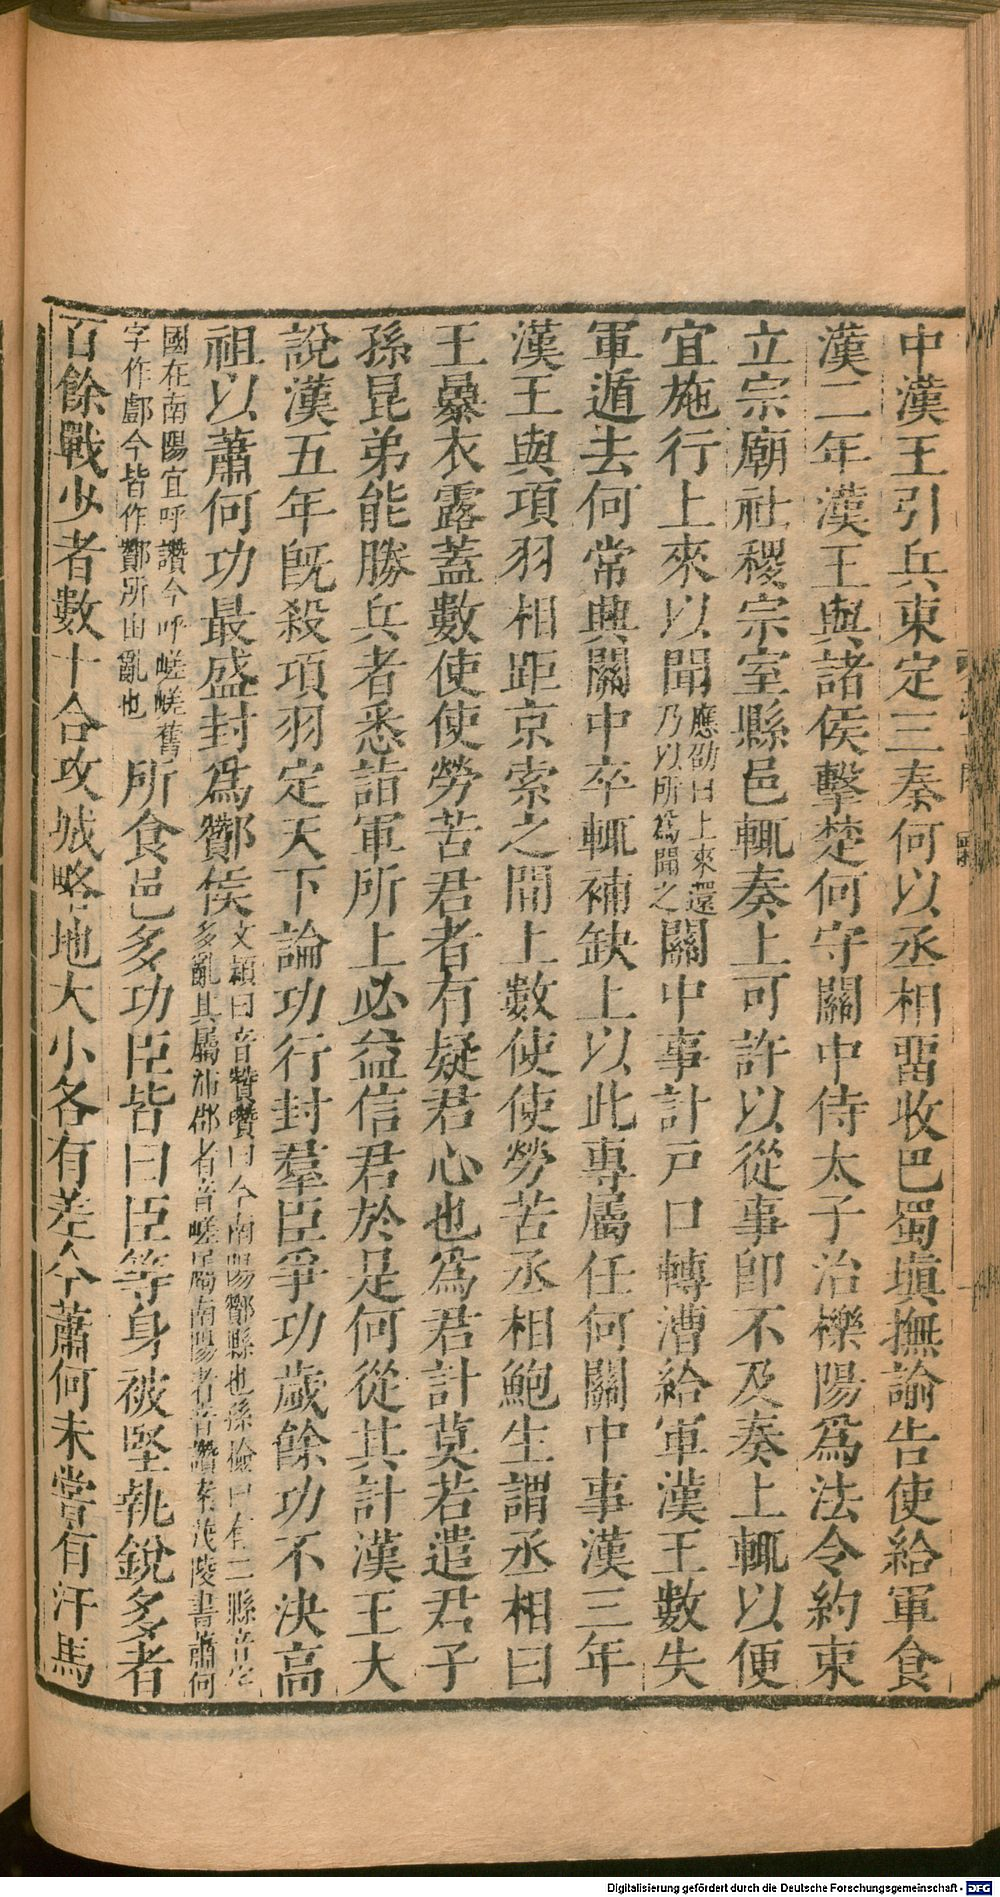 中漢王引兵東定三秦何以丞相畱收巴蜀塡撫諭告使給軍食
漢二年漢王與諸侯擊楚何守關中侍太子治櫟陽爲法令約束
立宗廟社稷宗室縣邑輒奏上可許以從事即不及奏上輒以便
宜施行上來以聞應劭曰上來還乃以所爲聞之關中事計戸口轉漕給軍漢王數失
軍遁去何常興關中卒輒補缺上以此專屬任何關中事漢三年
漢王與項羽相距京索之間上數使使勞苦丞相鮑生謂丞相曰
王暴衣露蓋數使使勞苦君者有疑君心也爲君計莫若遣君子
孫昆弟能勝兵者悉詣軍所上必益信君於是何從其計漢王大
說漢五年旣殺項羽定天下論功行封羣臣爭功歲餘功不決高
祖以蕭何功最盛封爲酇侯文穎曰音贊瓚曰今南陽酇縣也孫檢曰有二縣音字多亂其屬沛郡者音嵯屬南陽者音讚案茂陵書蕭何
國在南陽宜呼讚今呼嵯嵯舊字作䣜今皆作酇所由亂也所食邑多功臣皆曰臣等身被堅執銳多者
百餘戰少者數十合攻城略地大小各有差今蕭何未嘗有汗馬
Digitalisierung gefördert durch die Deutsche Forschungsgemeinschaft - DFG